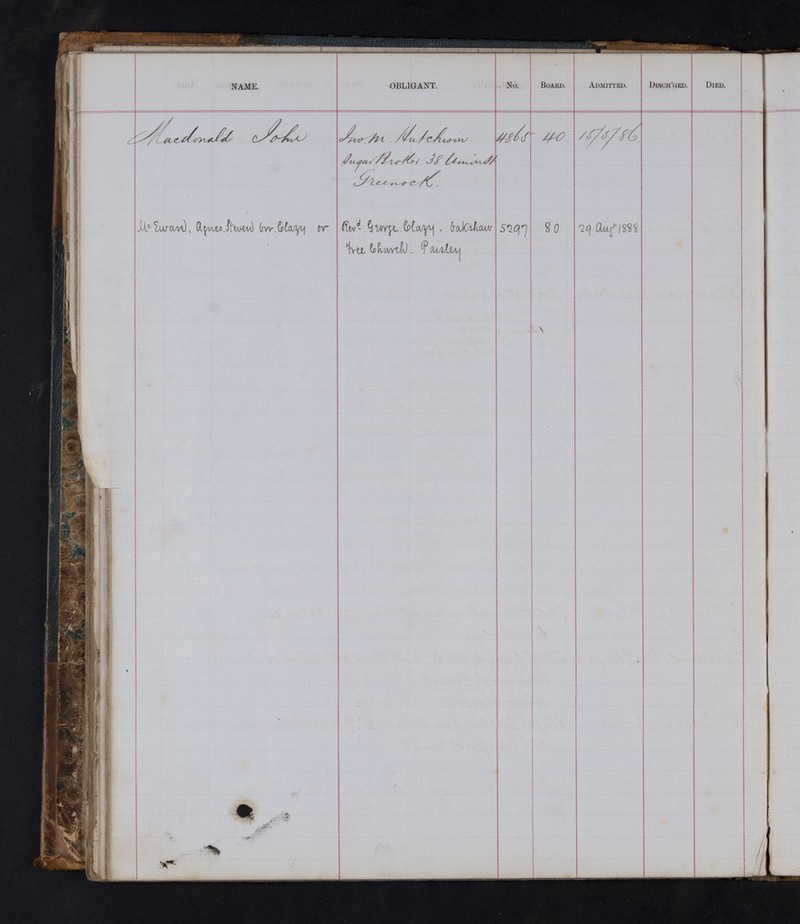 NAME. OBLIGANT. No. BOARD. ADMITTED. DISCH'GED. DIED.
Macdonald John Jno. M. Hutcheson 4865 40 15/5/86
Sugar Broker 38 St
Greenock.
Mc Ewan, Agnes Steven or Clazy or Revd. George Clazy. Oakshaw 5297 80 29 Augt 1888
Free Church. Paisley